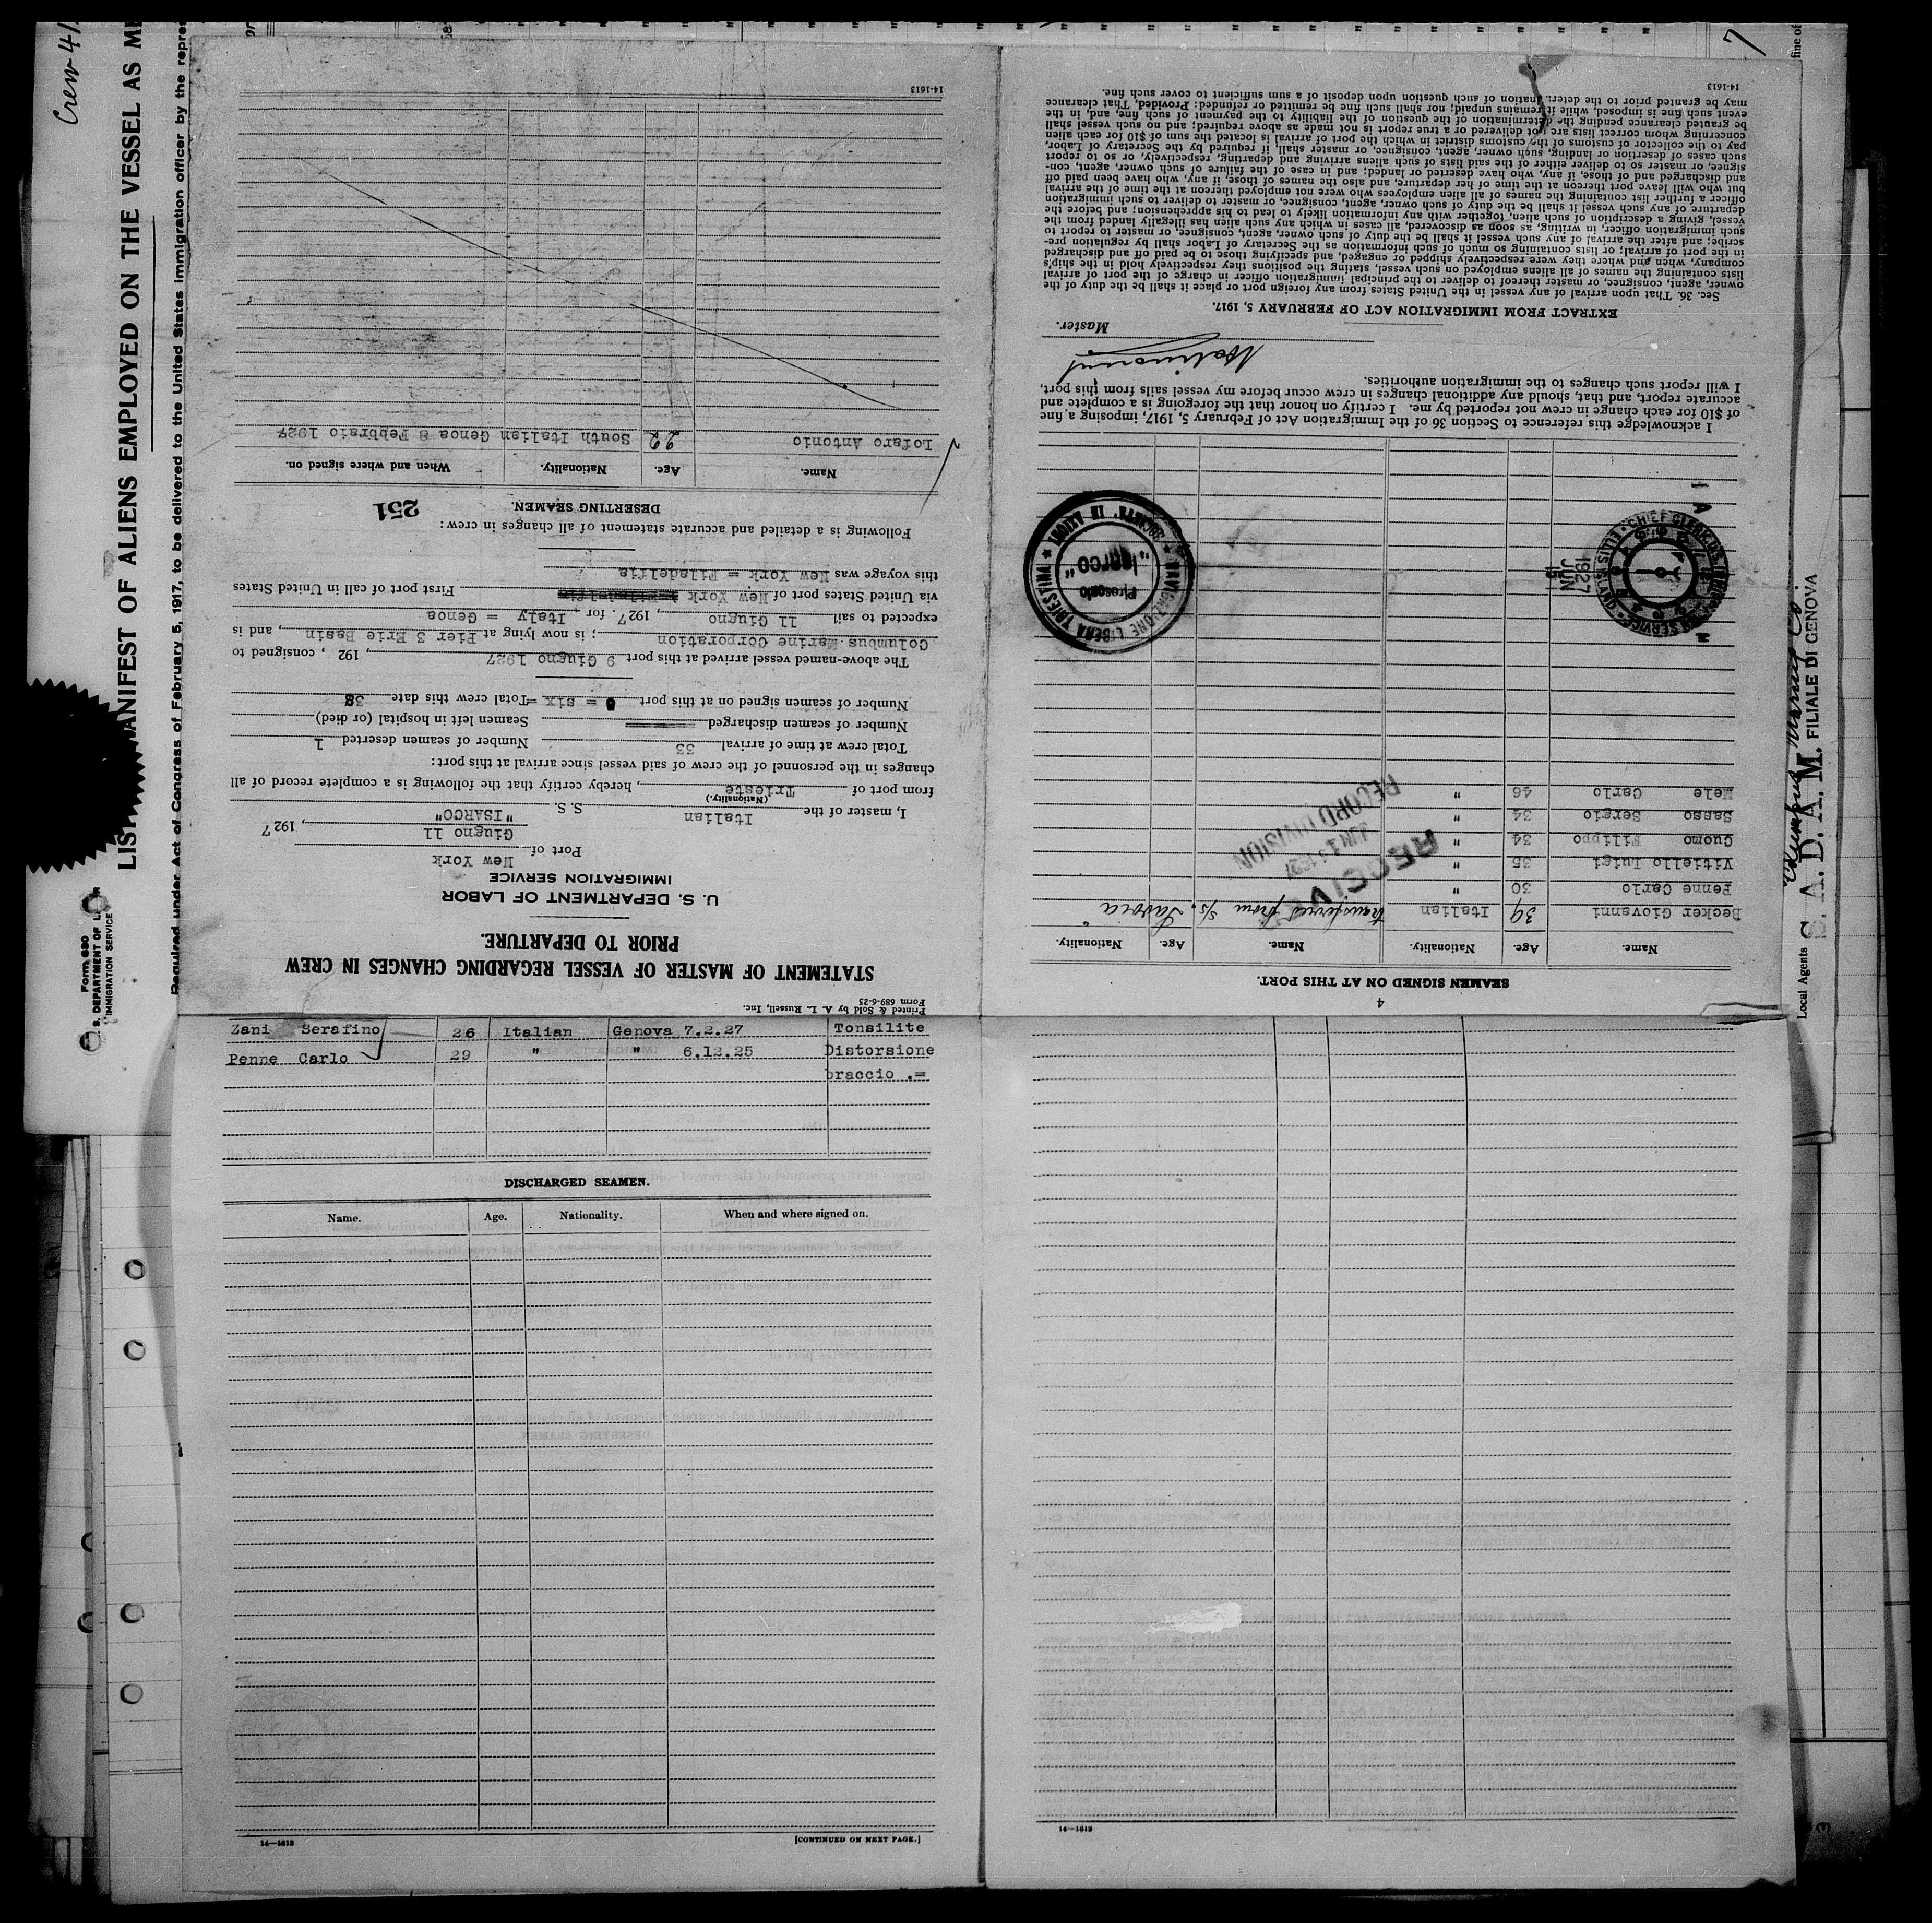 Crew 41
LIST
MANIFEST OF ALIENS EMPLOYED ON THE VESSEL AS M
Required under Act of Congress of February 5, 1917, to be delivered to the United States immigration officer by the repre
Form 680
S. DEPARTMENT OF L
IMMIGRATION SERVICE
Printed & Sold by A. L. Russell, Inc.
Form 689-6-25
STATEMENT OF MASTER OF VESSEL REGARDING CHANGES IN CREW
PRIOR TO DEPARTURE.
U. S. DEPARTMENT OF LABOR
IMMIGRATION SERVICE
Port of New York
Giugno 11, 1927
I, master of the Italian S. S. "ISARCO"
(Nationality.)
from port of Trieste, hereby certify that the following is a complete record of all
changes in the personnel of the crew of said vessel since arrival at this port:
Total crew at time of arrival 33 Number of seamen deserted 1
Number of seamen discharged Seamen left in hospital (or died)
Number of seamen signed on at this port 6 = six = Total crew this date 38
The above-named vessel arrived at this port 9 Giugno 1927, 192 , consigned to
Columbus Marine Corporation; is now lying at Pier 3 Erie Basin, and is
expected to sail 11 Giugno, 1927. for Italy = Genoa
via United States port of New York First port of call in United States
this voyage was New York = Filadelfia
Following is a detailed and accurate statement of all changes in crew:
251
DESERTING SEAMEN.
Name. Age. Nationality. When and where signed on.
Lofaro Antonio 22 South Italian Genoa 8 Febbraio 1927
14-1613
4
SEAMEN SIGNED ON AT THIS PORT.
Name. Age. Nationality. Name. Age. Nationality.
Becker Giovanni 39 Italian transferred from s/s. Savoia
Penne Carlo 30 "
Vitiello Luigi 35 "
Cuomo Filippo 34 "
Sasso Sergio 34 "
Mele Carlo 46 "
RECEIVE
JUN 13 1927
RECORD DIVISION
NAVIGAZIONE LIBERA TRIESTINA
SOCIETA' IN AZIONI
Piroscafo
"Isarco"
CHIEF CLERK
ELLIS ISLAND
1927
JUN
A
M
I acknowledge this reference to Section 36 of the Immigration Act of February 5, 1917, imposing a fine
of $10 for each change in crew not reported by me. I certify on honor that the foregoing is a complete and
accurate report, and that, should any additional changes in crew occur before my vessel sails from this port,
I will report such changes to the immigration authorities.
Master.
EXTRACT FROM IMMIGRATION ACT OF FEBRUARY 5, 1917.
Sec. 36. That upon arrival of any vessel in the United States from any foreign port or place it shall be the duty of the
owner, agent, consignee, or master thereof to deliver to the principal immigration officer in charge of the port of arrival
lists containing the names of all aliens employed on such vessel, stating the positions they respectively hold in the ship's
company, when and where they were respectively shipped or engaged, and specifying those to be paid off and discharged
in the port of arrival; or lists containing so much of such information as the Secretary of Labor shall by regulation pre-
scribe; and after the arrival of any such vessel it shall be the duty of such owner, agent, consignee, or master to report to
such immigration officer, in writing, as soon as discovered, all cases in which any such alien has illegally landed from the
vessel, giving a description of such alien, together with any information likely to lead to his apprehension; and before the
departure of any such vessel it shall be the duty of such owner, agent, consignee, or master to deliver to such immigration
officer a further list containing the names of all alien employees who were not employed thereon at the time of the arrival
but who will leave port thereon at the time of her departure, and also the names of those, if any, who have been paid off
and discharged and of those, if any, who have deserted or landed; and in case of the failure of such owner, agent, con-
signee, or master so to deliver either of the said lists of such aliens arriving and departing, respectively, or so to report
such cases of desertion or landing, such owner, agent, consignee, or master shall, if required by the Secretary of Labor,
pay to the collector of customs of the customs district in which the port of arrival is located the sum of $10 for each alien
concerning whom correct lists are not delivered or a true report is not made as above required; and no such vessel shall
be granted clearance pending the determination of the question of the liability to the payment of such fine, and, in the
event such fine is imposed, while it remains unpaid; nor shall such fine be remitted or refunded: Provided, That clearance
may be granted prior to the determination of such question upon deposit of a sum sufficient to cover such fine.
14-1613
7
fine of
Zani Serafino 26 Italian Genova 7.2.27 Tonsilite
Penne Carlo 29 " " 6.12.25 Distorsione
braccio .=
DISCHARGED SEAMEN.
Name. Age. Nationality. When and where signed on.
14—1613
[CONTINUED ON NEXT PAGE.]
14—1613
Local Agents
S. A. D. A. M. FILIALE DI GENOVA